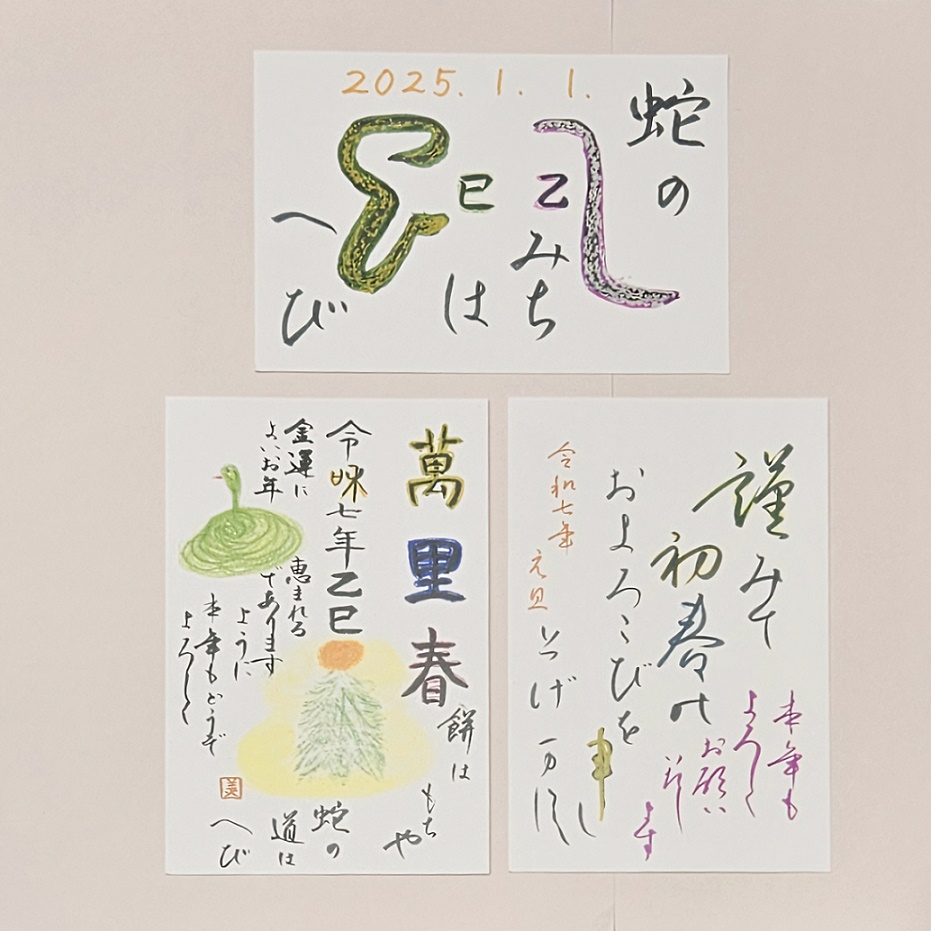 2025. 1. 1.
蛇の
みち
は
へび
乙
巳
萬里春
餅は
もち
や
令咊七年乙巳
金運に
恵まれる
よいお年
であります
ように
本年もどうぞ
よろしく
蛇の
道は
へび
謹みて
初春の
およろこびを
申し
本年も
よろしく
お願い
致し
ます
令和七年
元旦